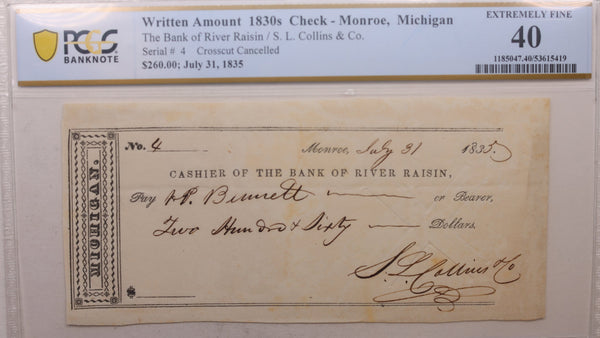 PCGS
BANKNOTE
Written Amount 1830s Check - Monroe, Michigan
The Bank of River Raisin / S. L. Collins & Co.
Serial # 4 Crosscut Cancelled
$260.00; July 31, 1835
EXTREMELY FINE
40
1185047.40/53615419
MICHIGAN.
No. 4
Monroe, July 31 1835
CASHIER OF THE BANK OF RIVER RAISIN,
Pay Bennett or Bearer,
Two Hundred & Sixty Dollars.
S. L. Collins & Co
$